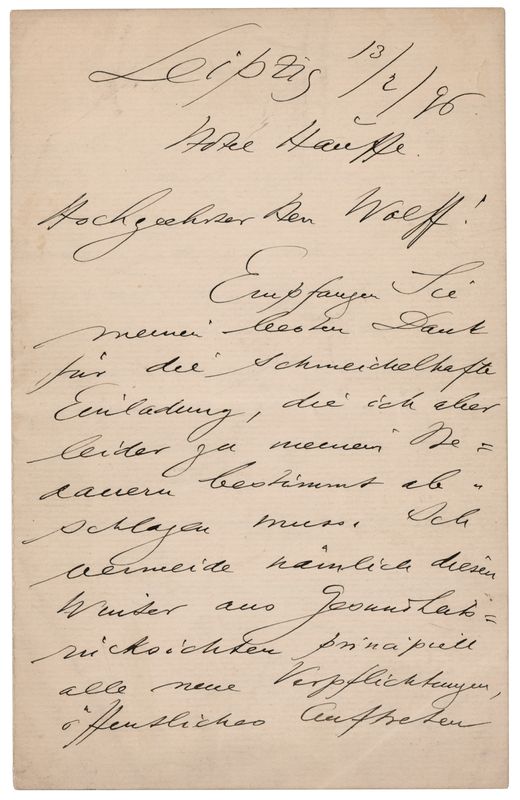 Leipzig 13/2/96.
Hotel Hauffe.
Hochgeehrter Herr Wolff!
Empfangen Sie
meinen besten Dank
für die schmeichelhafte
Einladung, die ich aber
leider zu meinem Be=
dauern bestimmt ab"
schlagen muss. Ich
vermeide nämlich diesen
Winter aus Gesundheits=
rücksichten principiell
alle neue Verpflichtungen,
öffentliches Auftreten